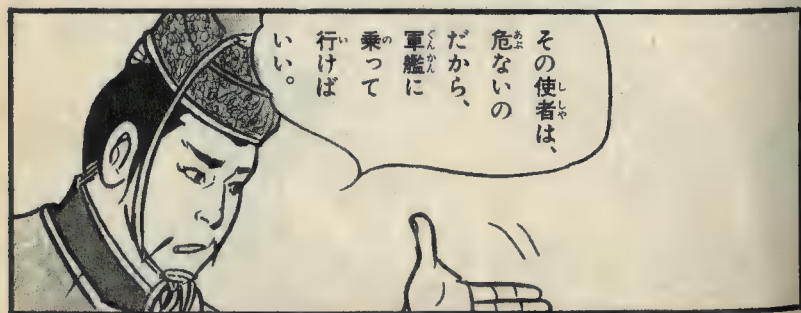 その使者は、
危ないの
だから、
軍艦に
乗って
行けば
いい。